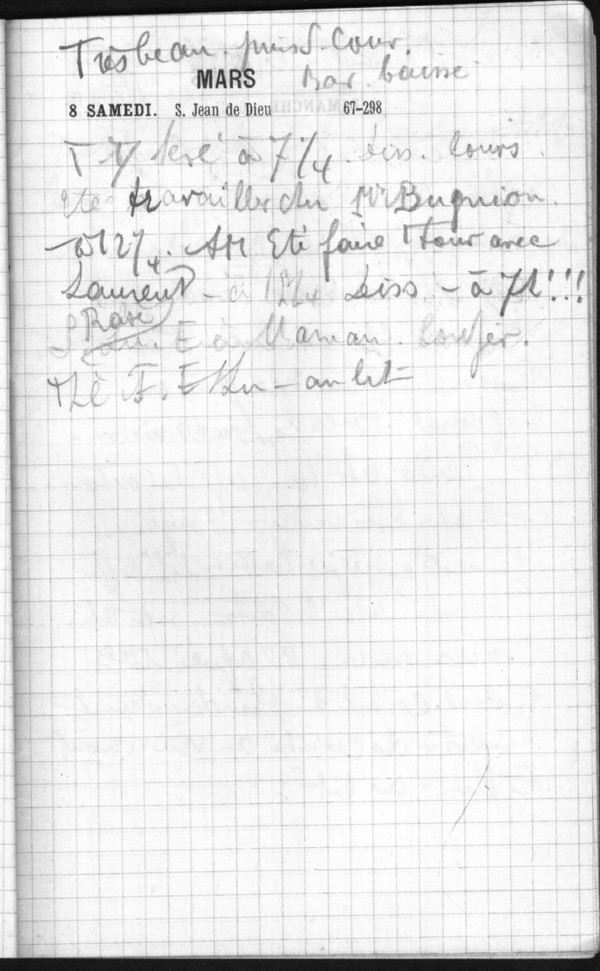 Très beau. puis S. Couv.
MARS Bar. baisse
8 SAMEDI. S. Jean de Dieu 67-298
levé à 7 1/4. Diss. Cours.
Été travailler chez Mr Bugnion.
à 12 1/4. AM Eté faire 1 tour avec
Laurent - à Diss - à 7h!!!
Rose
Maman.
Thé F. - au lit -